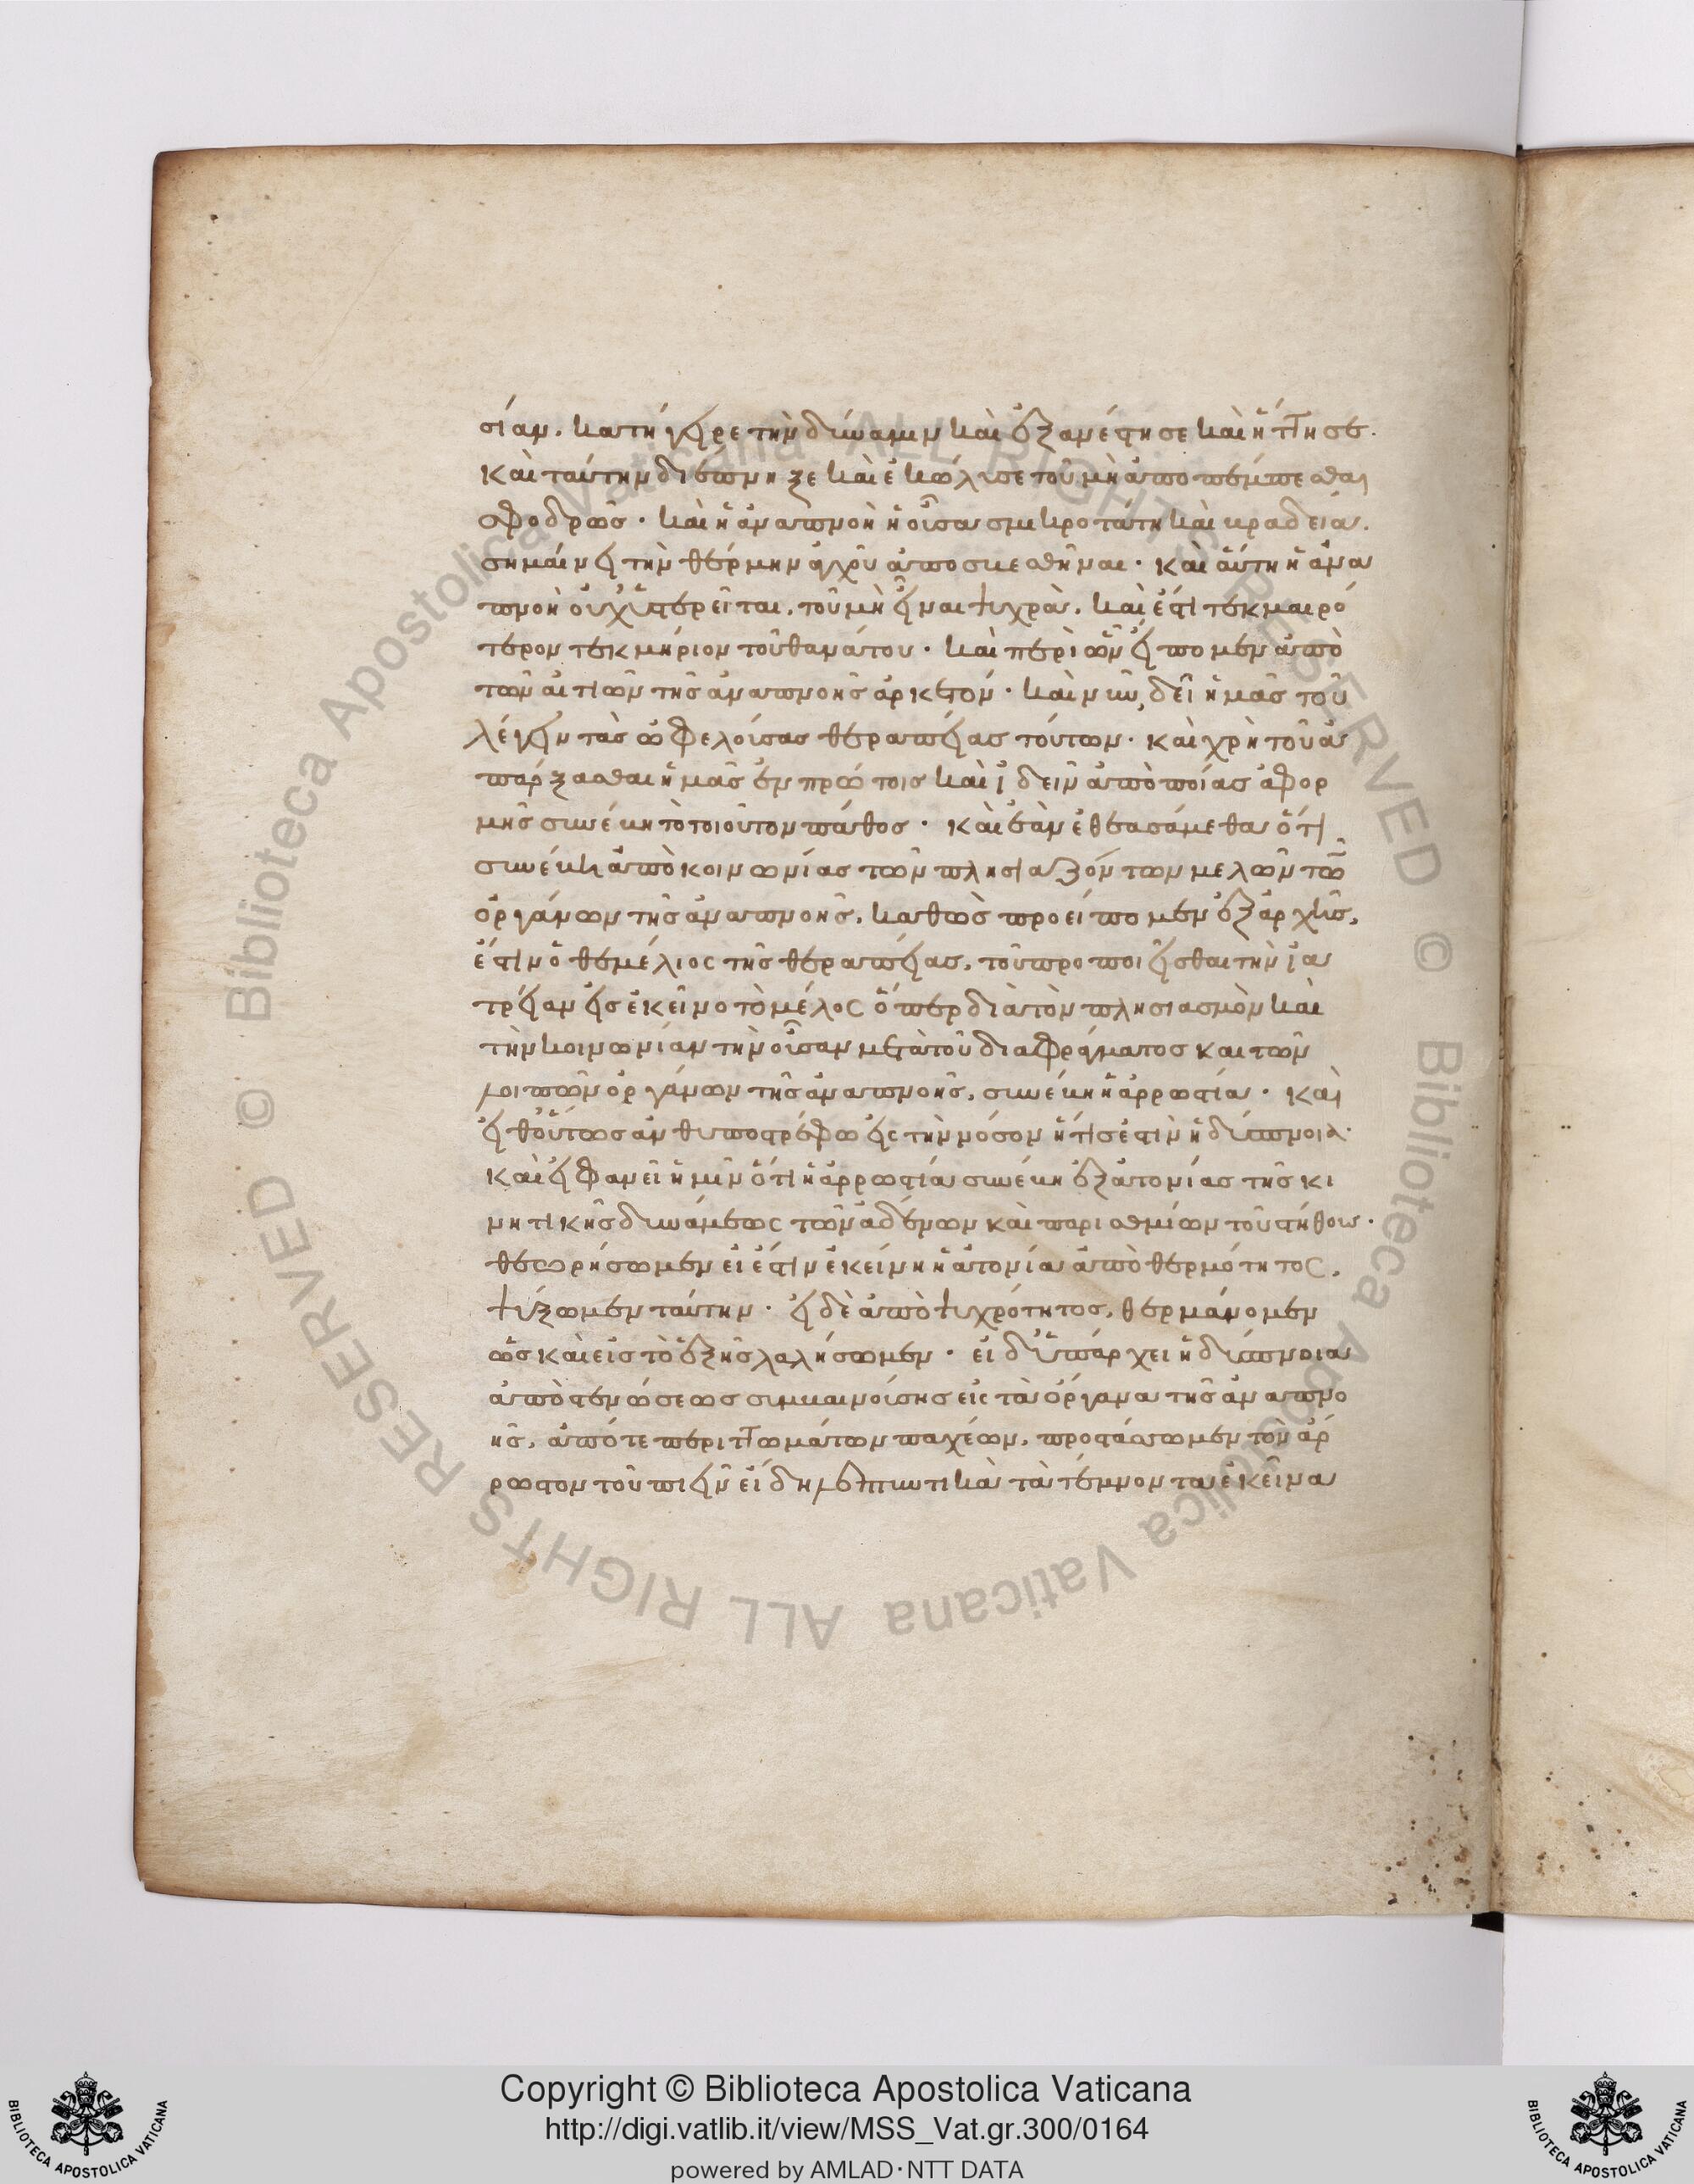 σίαν. κατήγειρε τὴν δύναμιν καὶ ἐξανέστησε καὶ ἥττησε.
καὶ ταύτην διέπνηξε καὶ ἐκώλυσε τοῦ μὴ ἀποπέμπεσθαι
σφοδρῶς· καὶ ἡ ἀναπνοὴ ἡ οὖσα σμικροτάτη καὶ κραδεία.
σημαίνει τὴν θέρμην ἀγχοῦ ἀποσβεσθῆναι· καὶ αὕτη ἡ ἀνα
πνοὴ οὐχ ὑστερεῖται, τοῦ μὴ εἶναι ψυχρὰ. καὶ ἔστι τεκμαιρό
τερον τεκμήριον τοῦ θανάτου· καὶ περὶ ὧν εἴπομεν ἀπὸ
τῶν αἰτιῶν τῆς ἀναπνοῆς ἀρκετόν· καὶ νῦν δεῖ ἡμᾶς τοῦ
λέγειν τὰς ὠφελούσας θεραπείας τούτων· καὶ χρὴ τοῦ ἀ
πάρξασθαι ἡμᾶς ἐν πρώτοις καὶ ἰδεῖν ἀπὸ ποίας ἀφορ
μῆς συνέβη τὸ τοιοῦτον πάθος· καὶ ἐὰν ἐθεασάμεθα ὅτι
συνέβη ἀπὸ κοινωνίας τῶν πλησιαζόντων μελῶν τῶν
ὀργάνων τῆς ἀναπνοῆς, καθὼς προείπομεν ἐξ ἀρχῆς,
ἔστιν ὁ θεμέλιος τῆς θεραπείας, τοῦ προποιεῖσθαι τὴν ἰα
τρείαν εἰς ἐκεῖνο τὸ μέλος ὅπερ διὰ τὸν πλησιασμὸν καὶ
τὴν κοινωνίαν τὴν οὖσαν μετὰ τοῦ διαφράγματος καὶ τῶν
λοιπῶν ὀργάνων τῆς ἀναπνοῆς, συνέβη ἡ ἀρρωστία· καὶ
εἶθ οὕτως ἀνθυποστρέφω εἰς τὴν νόσον ἥτις ἐστὶν ἡ δύσπνοια·
καὶ εἰ φανεῖ ἡμῖν ὅτι ἡ ἀρρωστία συνέβη ἐξ ἀτονίας τῆς κι
νητικῆς δυνάμεως τῶν ἀδένων καὶ παρισθμίων τοῦ στήθους·
θεωρήσωμεν εἰ ἔστιν ἐκείνη ἡ ἀτονία ἀπὸ θερμότητος,
ψύξωμεν ταύτην· εἰ δὲ ἀπὸ ψυχρότητος, θερμάνομεν
ὡς καὶ εἰς τὸ ἑξῆς λαλήσωμεν· εἰ δ' ὑπάρχει ἡ δύσπνοια
ἀπὸ στενώσεως συμβαινούσης εἰς τὰ ὄργανα τῆς ἀναπνο
ῆς, ἀπό τε περιττωμάτων παχέων, προστάσσωμεν τὸν ἄρ
ρωστον τοῦ πιεῖν εἴδη λεπτυντικὰ τὰ τέμνοντα ἐκεῖνα
Copyright © Biblioteca Apostolica Vaticana
http://digi.vatlib.it/view/MSS_Vat.gr.300/0164
powered by AMLAD·NTT DATA
BIBLIOTECA APOSTOLICA VATICANA
BIBLIOTECA APOSTOLICA VATICANA
© Biblioteca Apostolica Vaticana ALL RIGHTS RESERVED
© Biblioteca Apostolica Vaticana ALL RIGHTS RESERVED